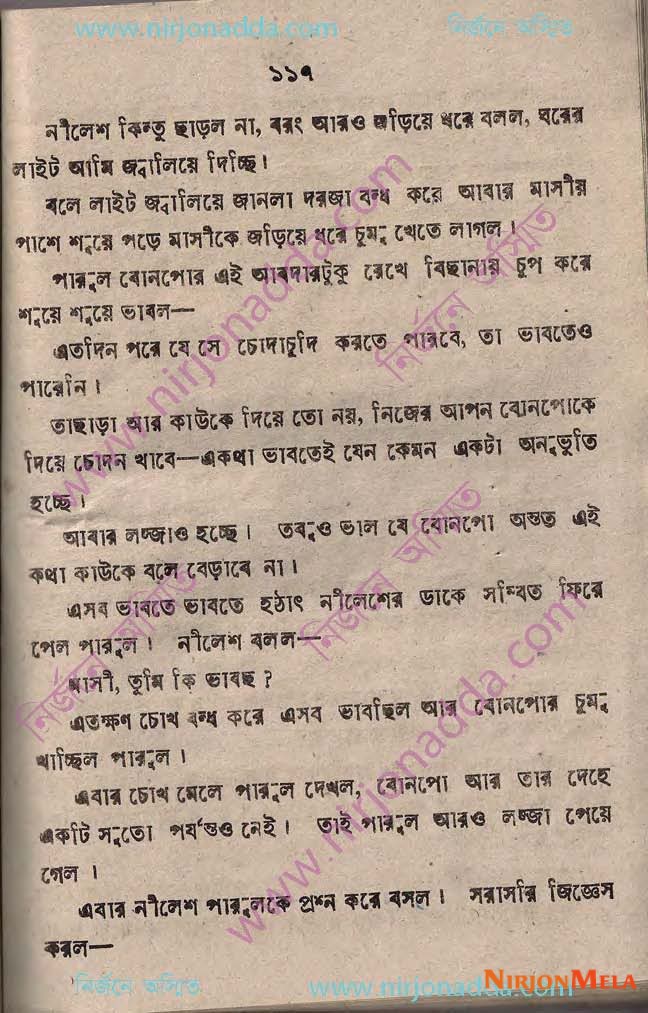 www.nirjonadda.com নির্জনে অস্মিত
১১৭
নীলেশ কিন্তু ছাড়ল না, বরং আরও জড়িয়ে ধরে বলল, ঘরের
লাইট আমি জ্বালিয়ে দিচ্ছি।
বলে লাইট জ্বালিয়ে জানলা দরজা বন্ধ করে আবার মাসীর
পাশে শুয়ে পড়ে মাসীকে জড়িয়ে ধরে চুমু খেতে লাগল।
পারুল বোনপোর এই আবদারটুকু রেখে বিছানায় চুপ করে
শুয়ে শুয়ে ভাবল—
এতদিন পরে যে সে চোদাচুদি করতে পারবে, তা ভাবতেও
পারেনি।
তাছাড়া আর কাউকে দিয়ে তো নয়, নিজের আপন বোনপোকে
দিয়ে চোদন খাবে—একথা ভাবতেই যেন কেমন একটা অনুভূতি
হচ্ছে।
আবার লজ্জাও হচ্ছে। তবুও ভাল যে বোনপো অন্তত এই
কথা কাউকে বলে বেড়াবে না।
এসব ভাবতে ভাবতে হঠাৎ নীলেশের ডাকে সম্বিত ফিরে
পেল পারুল। নীলেশ বলল—
মাসী, তুমি কি ভাবছ?
এতক্ষণ চোখ বন্ধ করে এসব ভাবছিল আর বোনপোর চুমু
খাচ্ছিল পারুল।
এবার চোখ মেলে পারুল দেখল, বোনপো আর তার দেহে
একটি সুতো পর্যন্তও নেই। তাই পারুল আরও লজ্জা পেয়ে
গেল।
এবার নীলেশ পারুলকে প্রশ্ন করে বসল। সরাসরি জিজ্ঞেস
করল—
নির্জনে অস্মিত www.nirjonadda.com NIRJONMELA